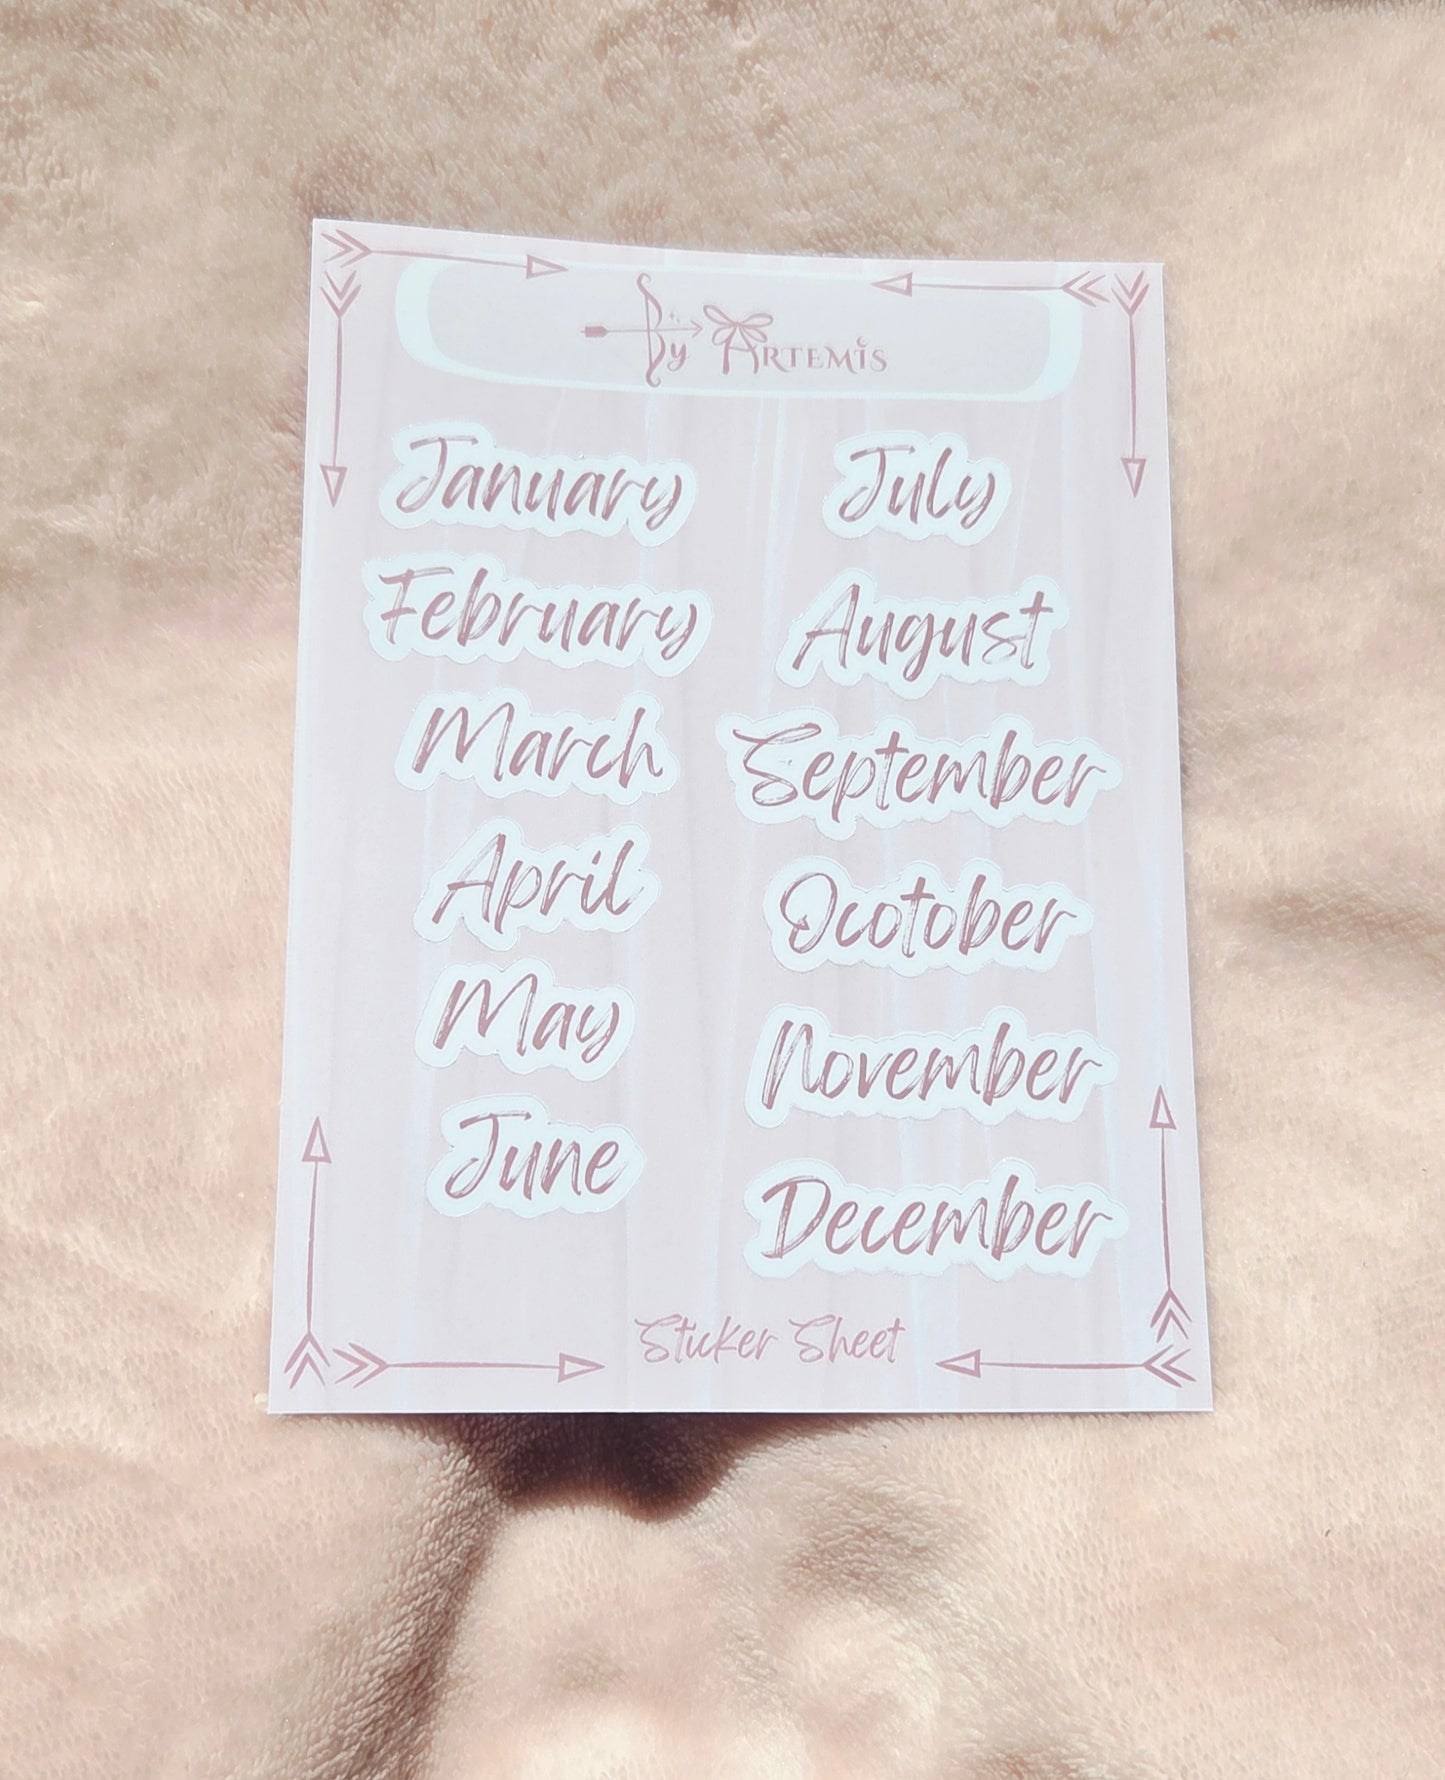 By Artemis
January
February
March
April
May
June
July
August
September
Ocotober
November
December
Sticker Sheet